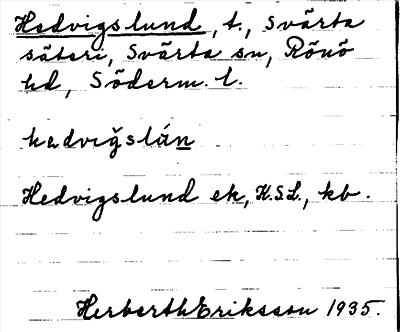 Hedvigslund, t., Svärta
säteri, Svärta sn, Rönö
hd, Söderm. l.
hedvig̀slán
Hedvigslund ek, K.S.L., kb.
Herberth Eriksson 1935.